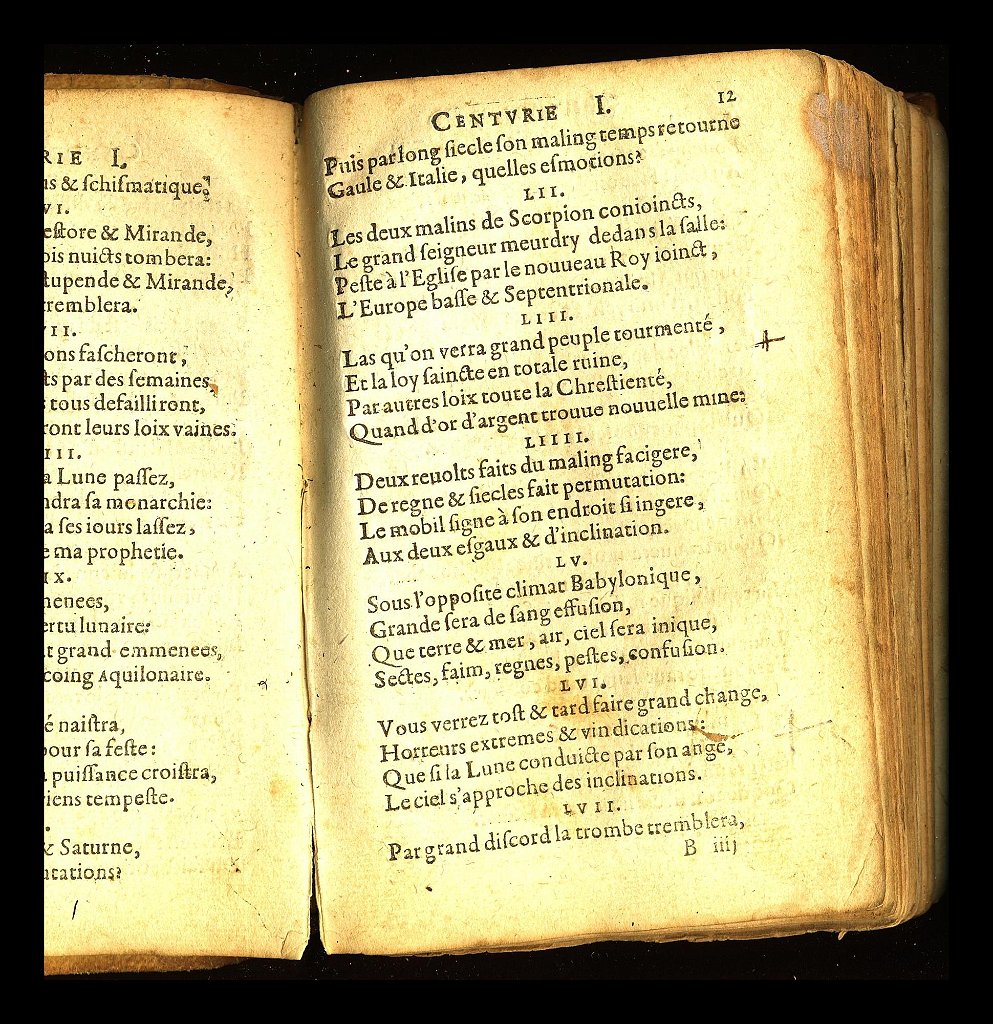 RIE I.
us & ſchiſmatique?
VI.
eſtore & Mirande,
ois nuicts tombera:
tupende & Mirande,
tremblera.
VII.
ons faſcheront,
ts par des ſemaines,
s tous defailliront,
ront leurs loix vaines.
III.
a Lune paſſez,
ndra ſa monarchie:
a ſes iours laſſez,
e ma prophetie.
IX.
menees,
ertu lunaire:
t grand emmenees,
coing Aquilonaire.
é naiſtra,
pour ſa feſte:
puiſſance croiſtra,
riens tempeſte.
& Saturne,
tations?
CENTVRIE I. 12
Puis par long ſiecle ſon maling temps retourne
Gaule & Italie, quelles eſmotions?
LII.
Les deux malins de Scorpion conioincts,
Le grand ſeigneur meurdry dedans la ſalle:
Peſte à l'Egliſe par le nouueau Roy ioinct,
L'Europe baſſe & Septentrionale.
LIII.
Las qu'on verra grand peuple tourmenté,
Et la loy ſaincte en totale ruine,
Par autres loix toute la Chreſtienté,
Quand d'or d'argent trouue nouuelle mine:
LIIII.
Deux reuolts faits du maling facigere,
De regne & ſiecles fait permutation:
Le mobil ſigne à ſon endroit ſi ingere,
Aux deux eſgaux & d'inclination.
LV.
Sous l'opposite climat Babylonique,
Grande ſera de ſang effuſion,
Que terre & mer, air, ciel ſera inique,
Sectes, faim, regnes, peſtes, confuſion.
LVI.
Vous verrez toſt & tard faire grand change,
Horreurs extremes & vindications:
Que ſi la Lune conduicte par ſon ange,
Le ciel s'approche des inclinations.
LVII.
Par grand diſcord la trombe tremblera,
B iiij